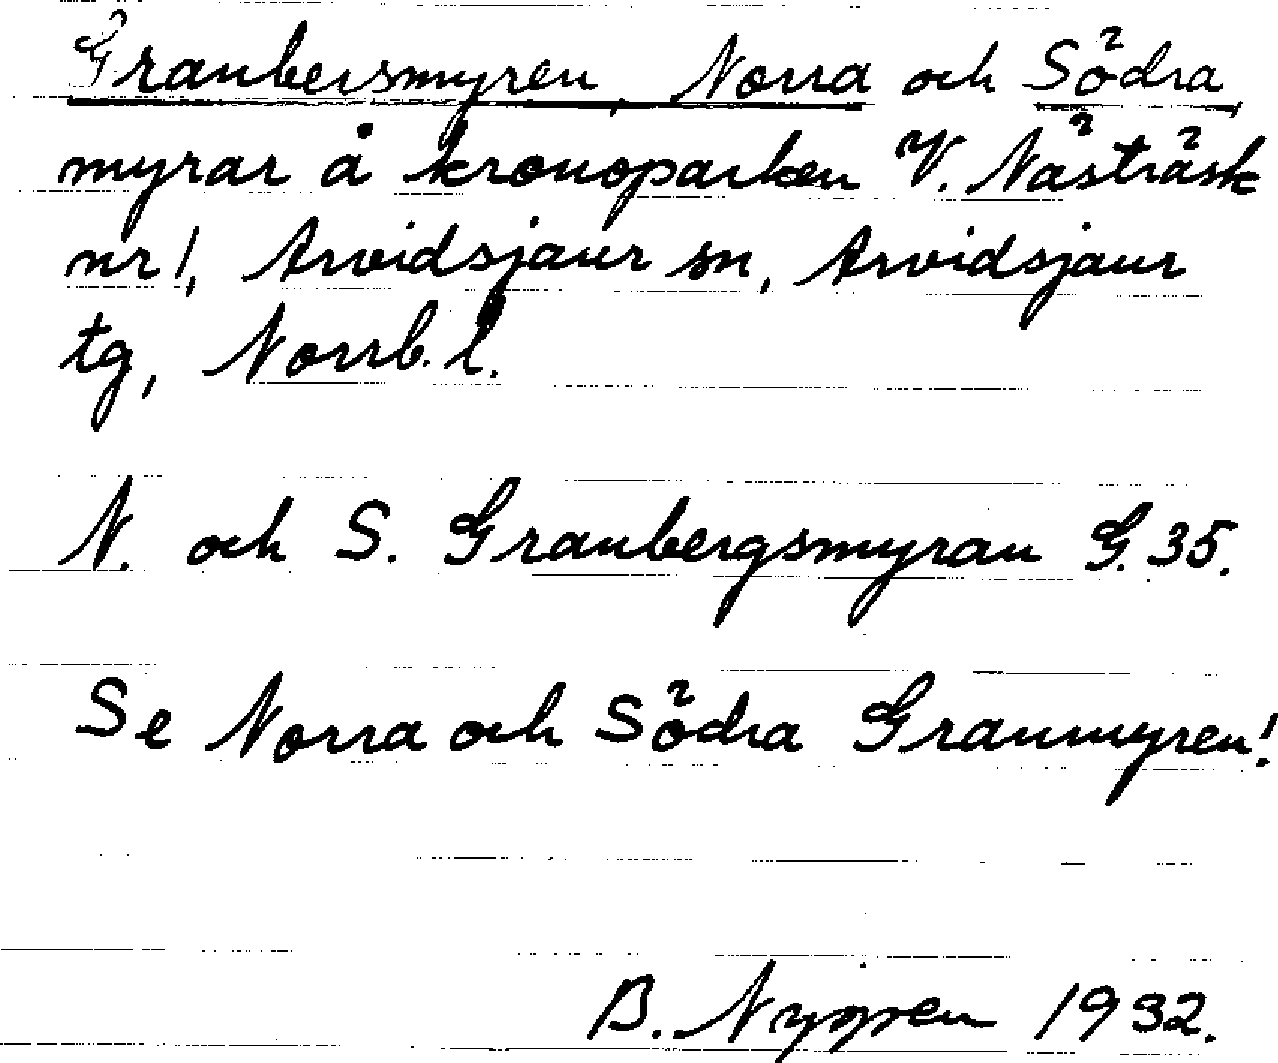 Granbersmyren, Norra och Södra
myrar å kronoparken V. Nästräsk
nr 1, Arvidsjaur sn, Arvidsjaur
tg, Norrb. l.
N. och S. Granbergsmyran G. 35.
Se Norra och Södra Granmyren!
B. Nygren 1932.